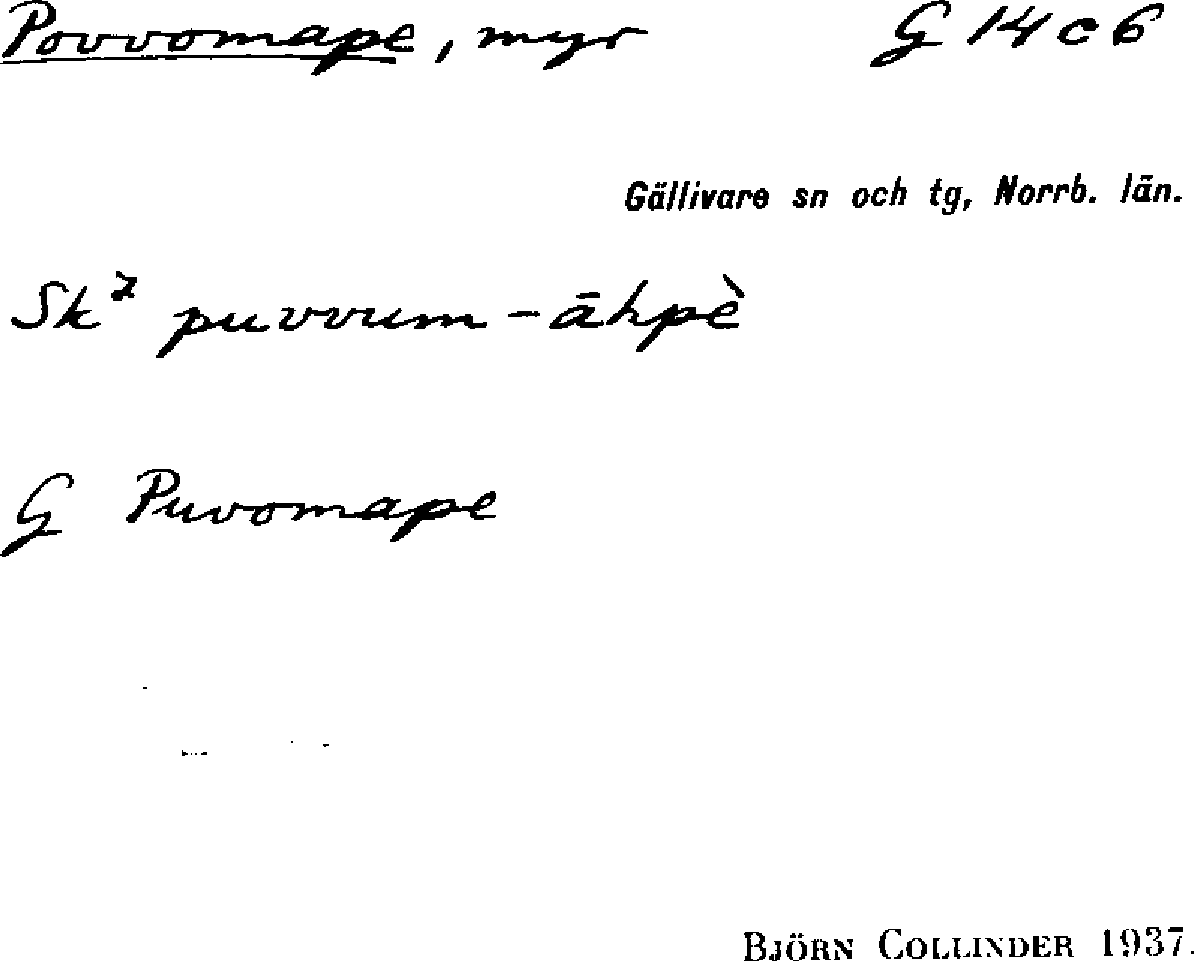 Povvomape, myr G 14 c 6
Gällivare sn och tg, Norrb. län.
Sk⁷ puvvum-āhpè
G Puvomape
BJÖRN COLLINDER 1937.